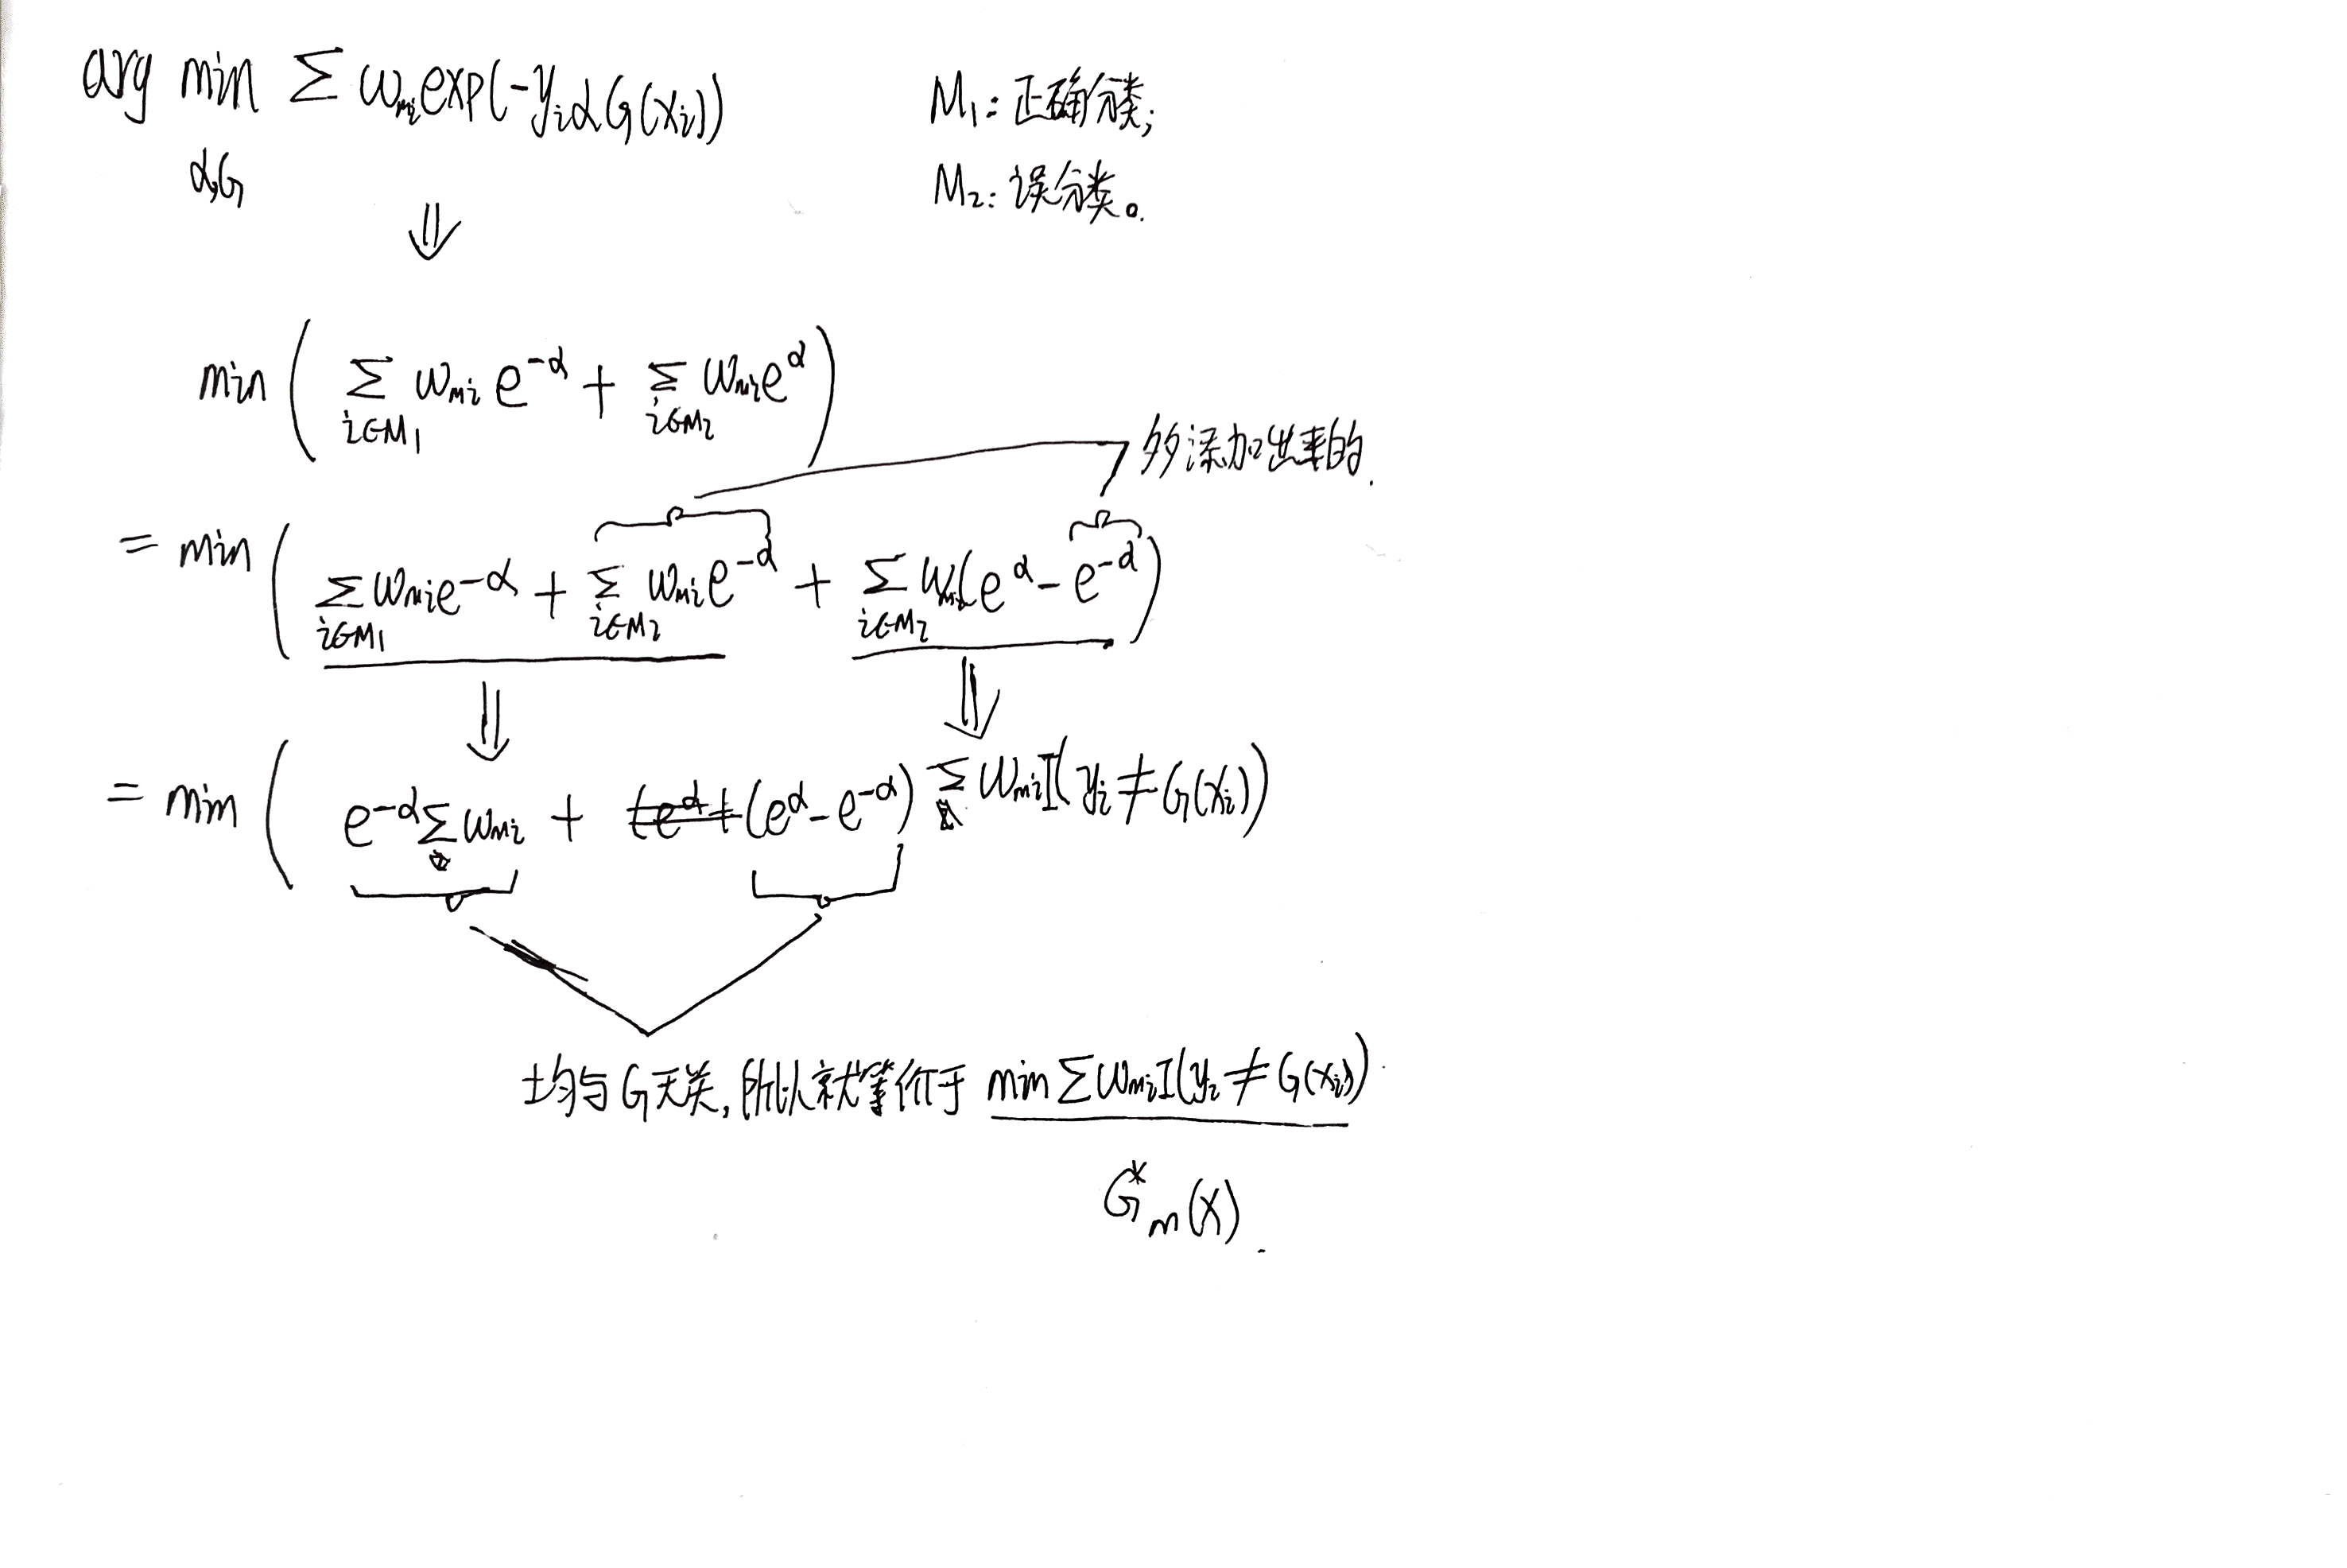 arg min Σ w_{mi} exp(-y_i α G(x_i))
M₁: 正确分类;
α,G
M₂: 误分类。
⇓
min ( Σ_{i∈M₁} w_{mi} e^{-α} + Σ_{i∈M₂} w_{mi} e^{α} )
多添加出来的.
= min ( Σ_{i∈M₁} w_{mi} e^{-α} + Σ_{i∈M₂} w_{mi} e^{-α} + Σ_{i∈M₂} w_{mi} (e^{α} - e^{-α}) )
⇓ ⇓
= min ( e^{-α} Σ w_{mi} + (e^{α} - e^{-α}) Σ w_{mi} I(y_i ≠ G(x_i)) )
均与G无关, 所以就等价于 min Σ w_{mi} I(y_i ≠ G(x_i)).
G*_m(x).